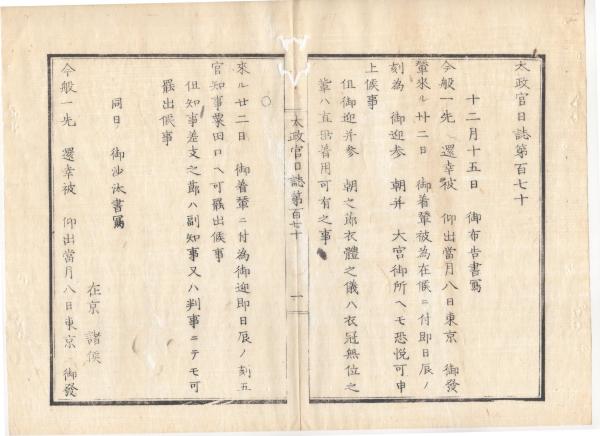 太政官日誌第百七十
十二月十五日 御布告書寫
今般一先 還幸被 仰出當月八日東京 御發
輦來ル廿二日 御着輦被為在候ニ付即日辰ノ
刻為 御迎参 朝并 大宮御所ヘモ恐悦可申
上候事
但御迎并参 朝之節衣體之儀ハ衣冠無位之
輩ハ直垂着用可有之事
太政官日誌第百七十
一
○
來ル廿二日 御着輦ニ付為御迎即日辰ノ刻五
官知事粟田口ヘ可罷出候事
但知事差支之節ハ副知事又ハ判事ニテモ可
罷出候事
同日 御沙汰書寫
在京 諸侯
今般一先 還幸被 仰出當月八日東京 御發